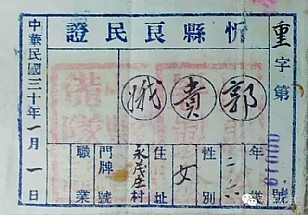 忻縣良民證
重字第010019號
郭貴
年歲 二六
性別 女
住址 永茂庄村
門牌 號
職業
中華民國三十年一月一日